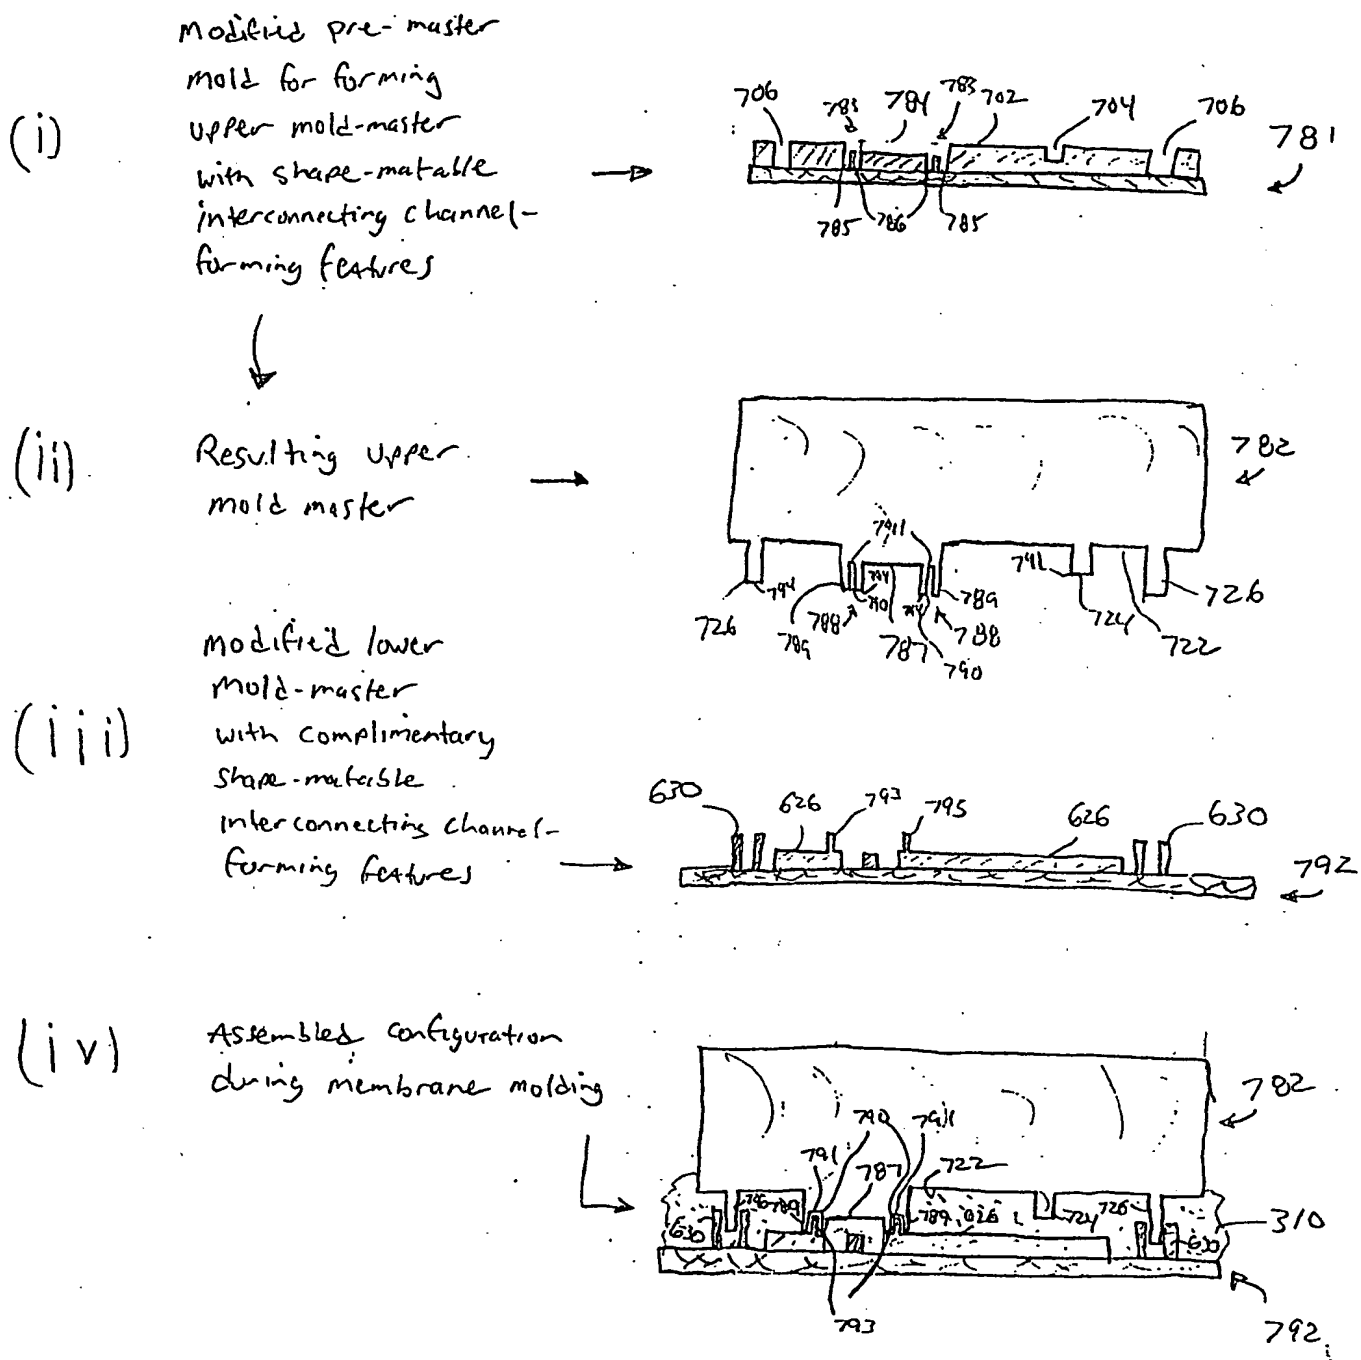 (i)
Modified pre-master
mold for forming
upper mold-master
with shape-matable
interconnecting channel-
forming features
706
783
784
783
702
704
706
781
785
786
785
(ii)
Resulting upper
mold master
782
741
794
726
789
788
790
794
787
790
789
788
741
724
722
726
(iii)
Modified lower
mold-master
with complimentary
shape-matable
interconnecting channel-
forming features
630
626
793
795
626
630
792
(iv)
Assembled configuration
during membrane molding
782
790
791
787
722
726
789
789
626
724
726
630
630
310
793
792